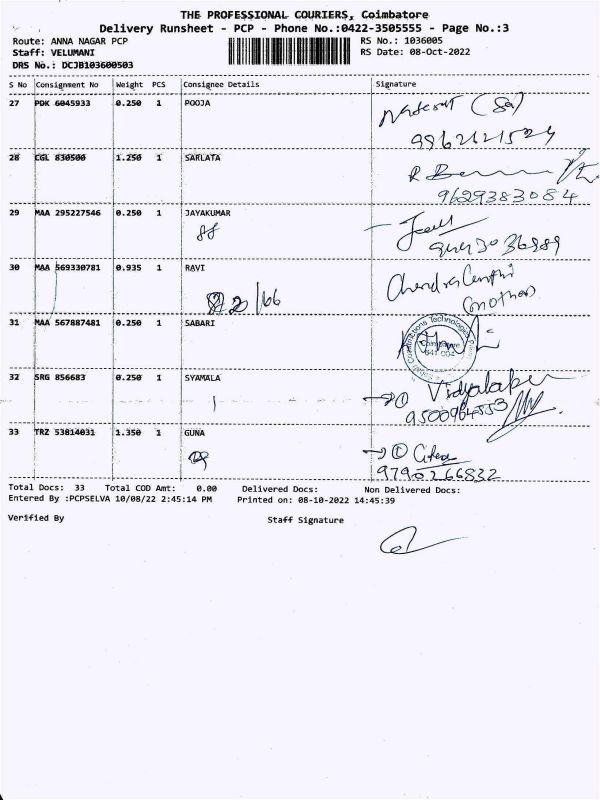 THE PROFESSIONAL COURIERS, Coimbatore
Delivery Runsheet - PCP - Phone No.:0422-3505555 - Page No.:3
Route: ANNA NAGAR PCP RS No.: 1036005
Staff: VELUMANI RS Date: 08-Oct-2022
DRS No.: DCJB103600503
S No Consignment No Weight PCS Consignee Details Signature
27 PDK 6045933 0.250 1 POOJA
9962121524
28 CGL 830500 1.250 1 SARLATA
9629383084
29 MAA 295227546 0.250 1 JAYAKUMAR
30 MAA 569330781 0.935 1 RAVI
31 MAA 567887481 0.250 1 SABARI
Coimbatore
641 004
32 SRG 856683 0.250 1 SYAMALA
9500964553
33 TRZ 53814031 1.350 1 GUNA
9790266832
Total Docs: 33 Total COD Amt: 0.00 Delivered Docs: Non Delivered Docs:
Entered By :PCPSELVA 10/08/22 2:45:14 PM Printed on: 08-10-2022 14:45:39
Verified By Staff Signature